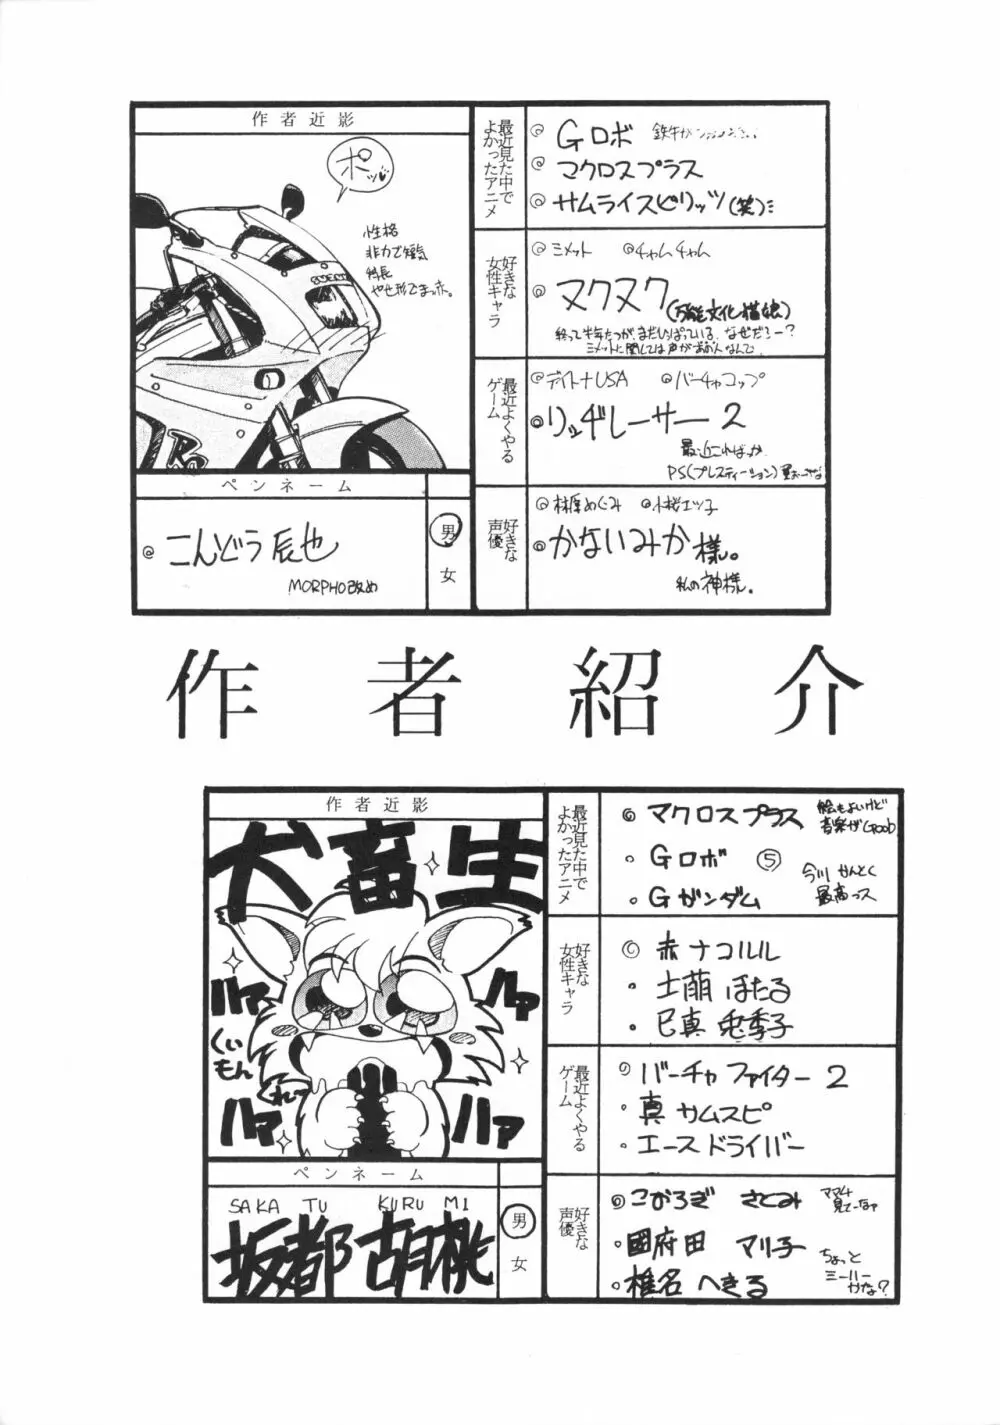 作者近影
ポッ
性格
非力で短気
特長
やせ形でまっ赤。
ペンネーム
こんどう辰也
MORPHO改め
男
女
最近見た中で
よかったアニメ
Gロボ
マクロスプラス
サムライスピリッツ(笑)
好きな
女性キャラ
ミメット
チャムチャム
ヌクヌク(万能文化猫娘)
終って半年たつが、まだひっぱっている。なぜだろー?
ミメットに関しては声が
なんで
最近よくやる
ゲーム
デイトナUSA
バーチャコップ
リッヂレーサー2
最近こればっか
PS(プレスティーション)
好きな
声優
林原めぐみ
小桜エツ子
かないみか様。
私の神様。
作者紹介
作者近影
犬畜生
ハァ
ハァ
くいもん
くれー
ハァ
ハァ
ペンネーム
SAKATU KURUMI
坂都胡桃
男
女
最近見た中で
よかったアニメ
マクロスプラス
絵もよいけど
音楽がGood
Gロボ ⑤
Gガンダム
今川かんとく
最高っス
好きな
女性キャラ
赤ナコルル
土萌ほたる
巳真兎季子
最近よくやる
ゲーム
バーチャファイター2
真サムスピ
エースドライバー
好きな
声優
こおろぎさとみ
ママ4
見てーなァ
國府田マリ子
椎名へきる
ちょっと
ミーハー
かな?